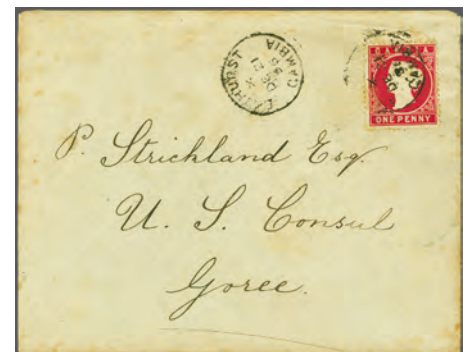 BATHURST
GAMBIA
GAMBIA
ONE PENNY
P. Strickland Esq.
U. S. Consul
Goree.